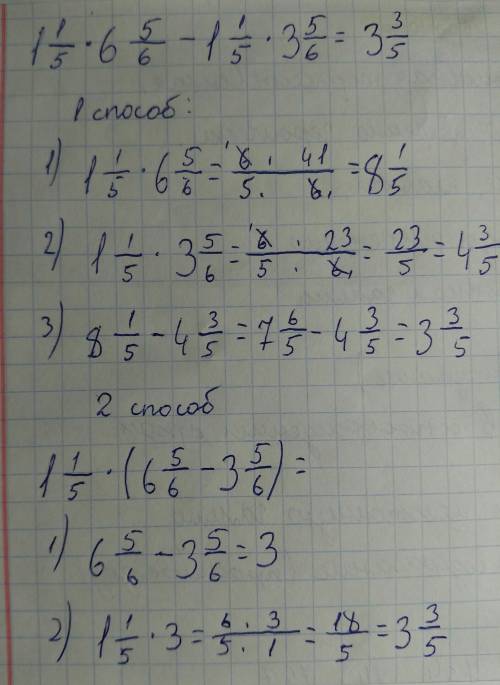 1 1/5 · 6 5/6 − 1 1/5 · 3 5/6 = 3 3/5
1 способ:
1) 1 1/5 · 6 5/6 = (6 · 41)/(5 · 6) = 8 1/5
2) 1 1/5 · 3 5/6 = (6 · 23)/(5 · 6) = 23/5 = 4 3/5
3) 8 1/5 − 4 3/5 = 7 6/5 − 4 3/5 = 3 3/5
2 способ
1 1/5 · (6 5/6 − 3 5/6) =
1) 6 5/6 − 3 5/6 = 3
2) 1 1/5 · 3 = (6 · 3)/(5 · 1) = 18/5 = 3 3/5